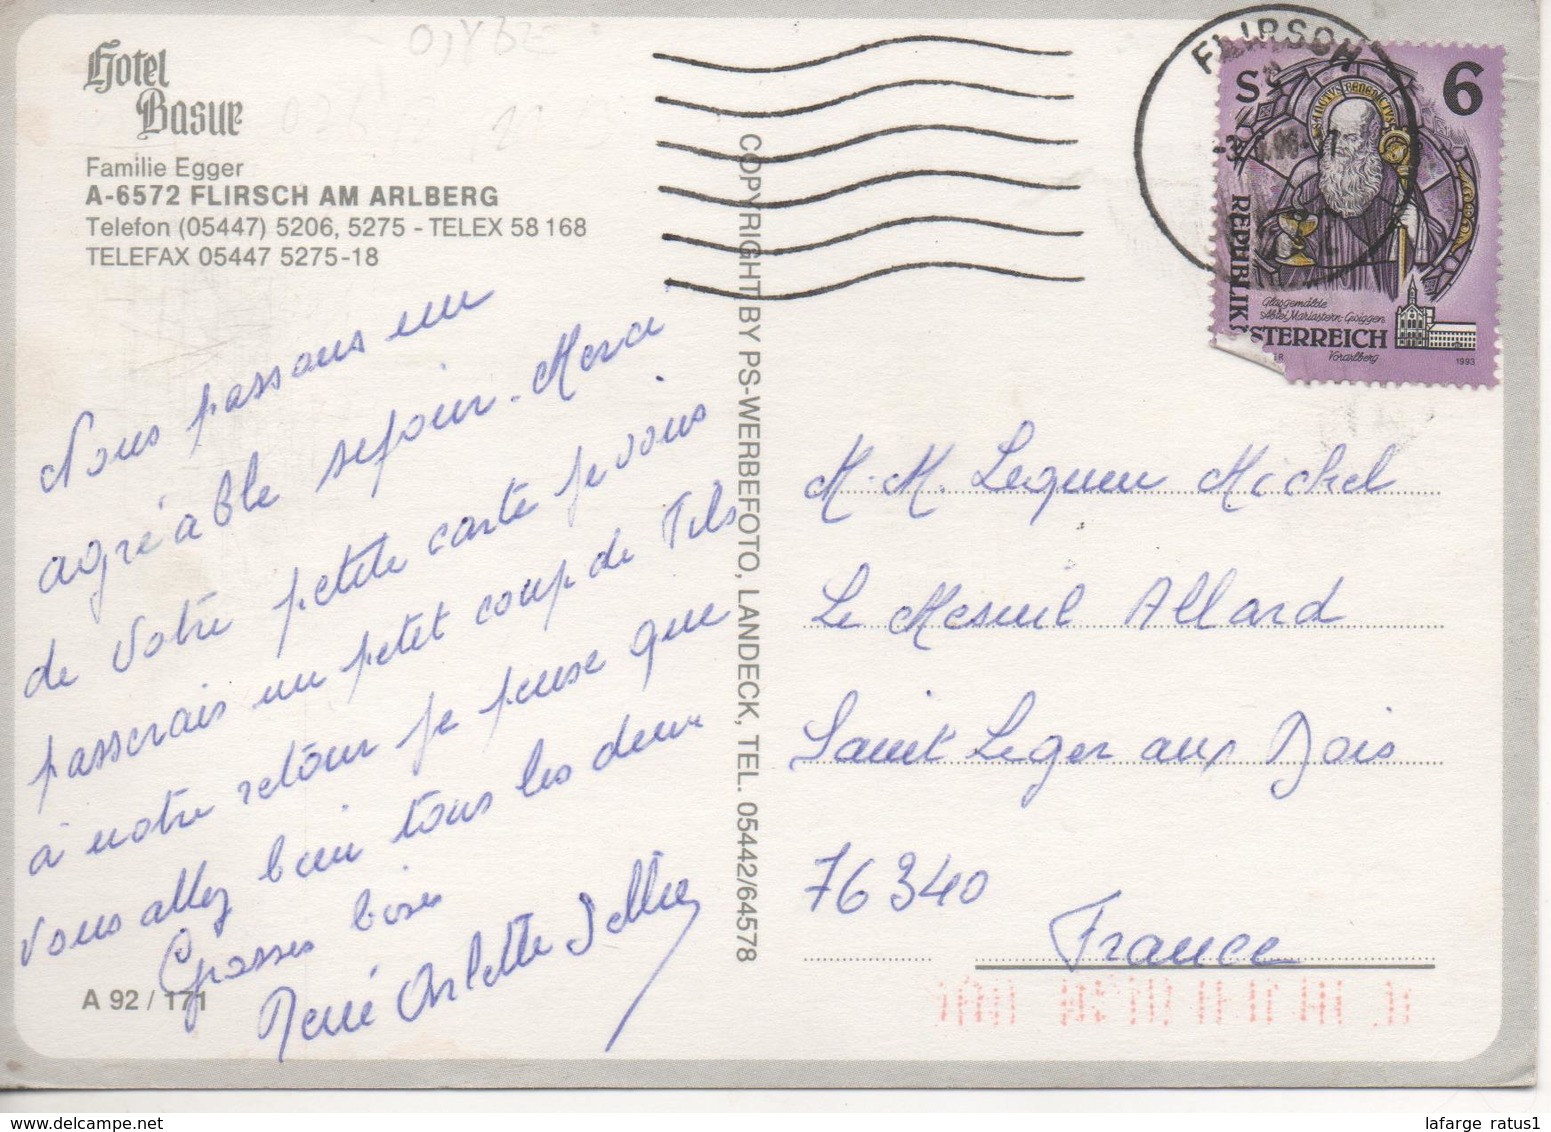 Hotel
Basur
Familie Egger
A-6572 FLIRSCH AM ARLBERG
Telefon (05447) 5206, 5275 - TELEX 58 168
TELEFAX 05447 5275-18
Nous passons un
agréable sejour. Merci
de votre petite carte je vous
passerais un petit coup de Tils
à notre retour je pense que
vous allez bien tous les deux
Grosses bises
René Arlette
A 92 / 171
COPYRIGHT BY PS-WERBEFOTO, LANDECK, TEL. 05442/64578
FLIRSCH
S 6
SANCTVS BENEDICTVS
REPUBLIK ÖSTERREICH
Glasgemälde
Abtei Mariastern-Gwiggen
Vorarlberg
1993
M. M. Lequen Michel
Le Mesnil Allard
Saint Leger aux Bois
76340
France
lafarge ratus1